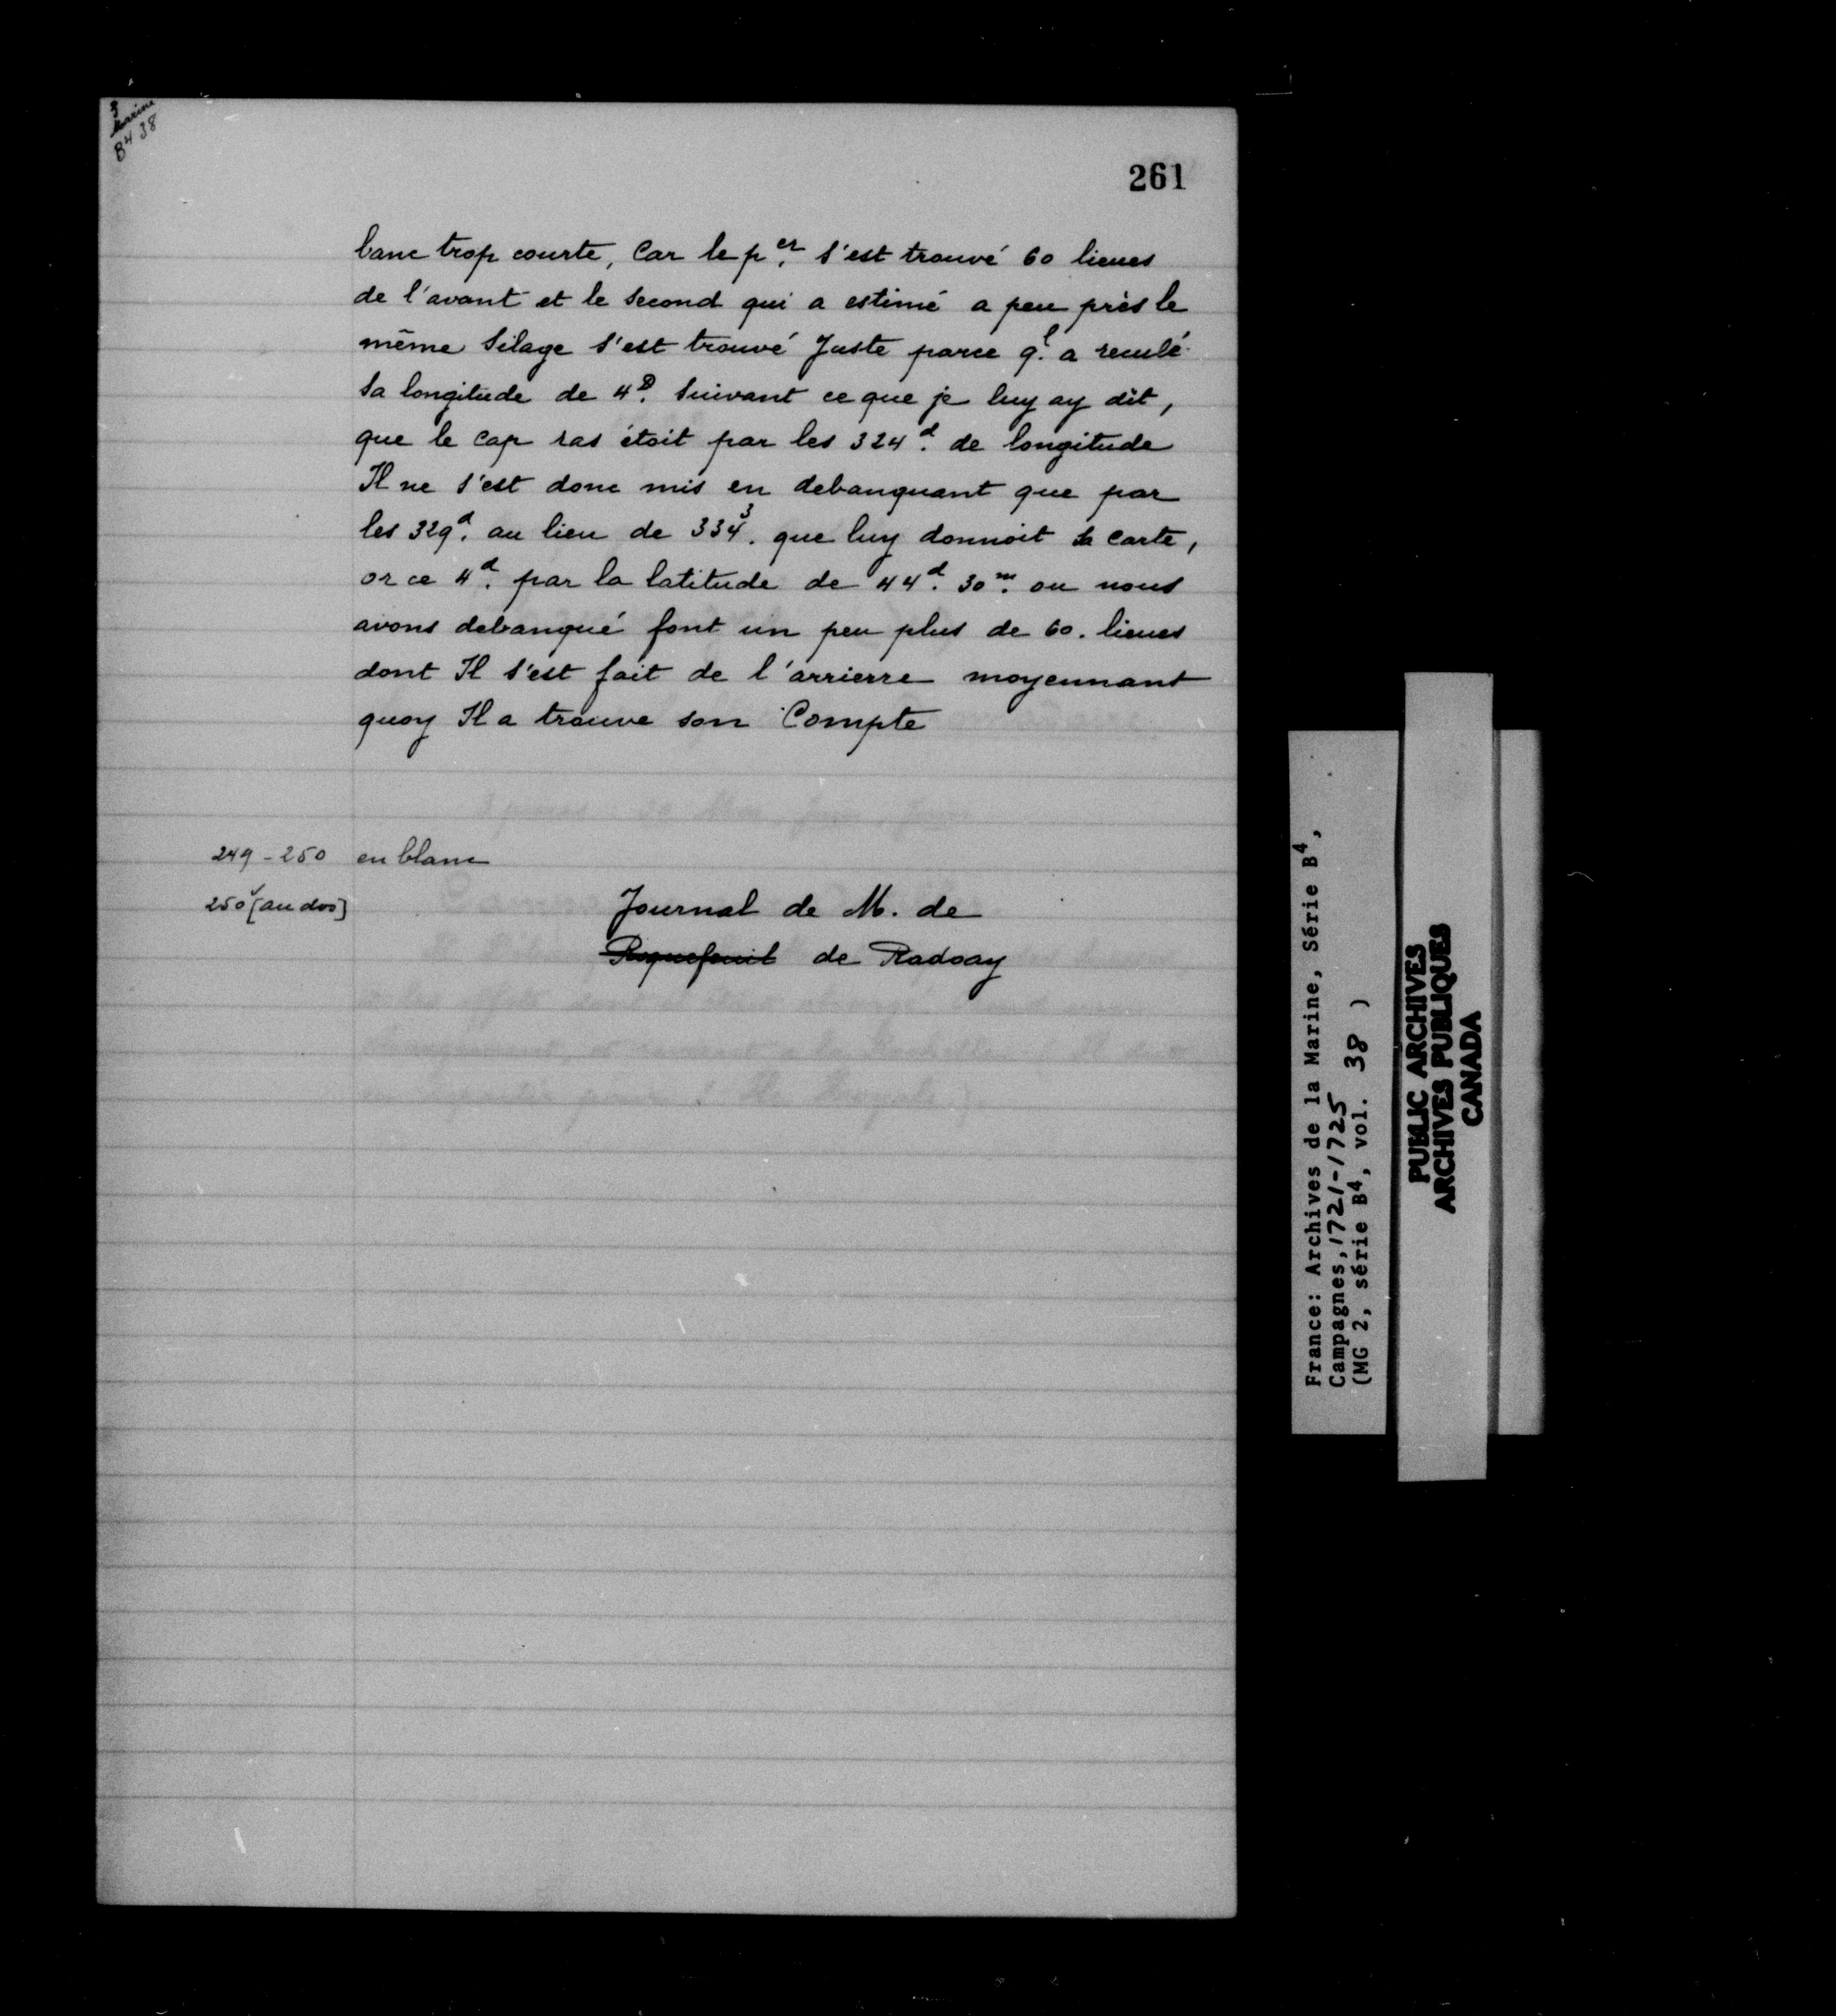 Marine
B4 38
261
banc trop courte, Car le p.er s'est trouvé 60 lieues
de l'avant et le second qui a estimé a peu près le
même Silage s'est trouvé Juste parce q.l a reculé
sa longitude de 4.D suivant ce que je luy ay dit,
que le Cap ras étoit par les 324.d de longitude
Il ne s'est donc mis en debanquant que par
les 329.d au lieu de 334.3 que luy donnoit sa Carte,
or ce 4.d par la latitude de 44.d 30.m ou nous
avons debanqué font un peu plus de 60. lieues
dont Il s'est fait de l'arrierre moyennant
quoy Il a trouve son Compte
249-250 en blanc
250v [au dos]
Journal de M. de
Roquefeuil de Radoay
France: Archives de la Marine, Série B4,
Campagnes, 1721-1725
(MG 2, série B4, vol. 38 )
PUBLIC ARCHIVES
ARCHIVES PUBLIQUES
CANADA